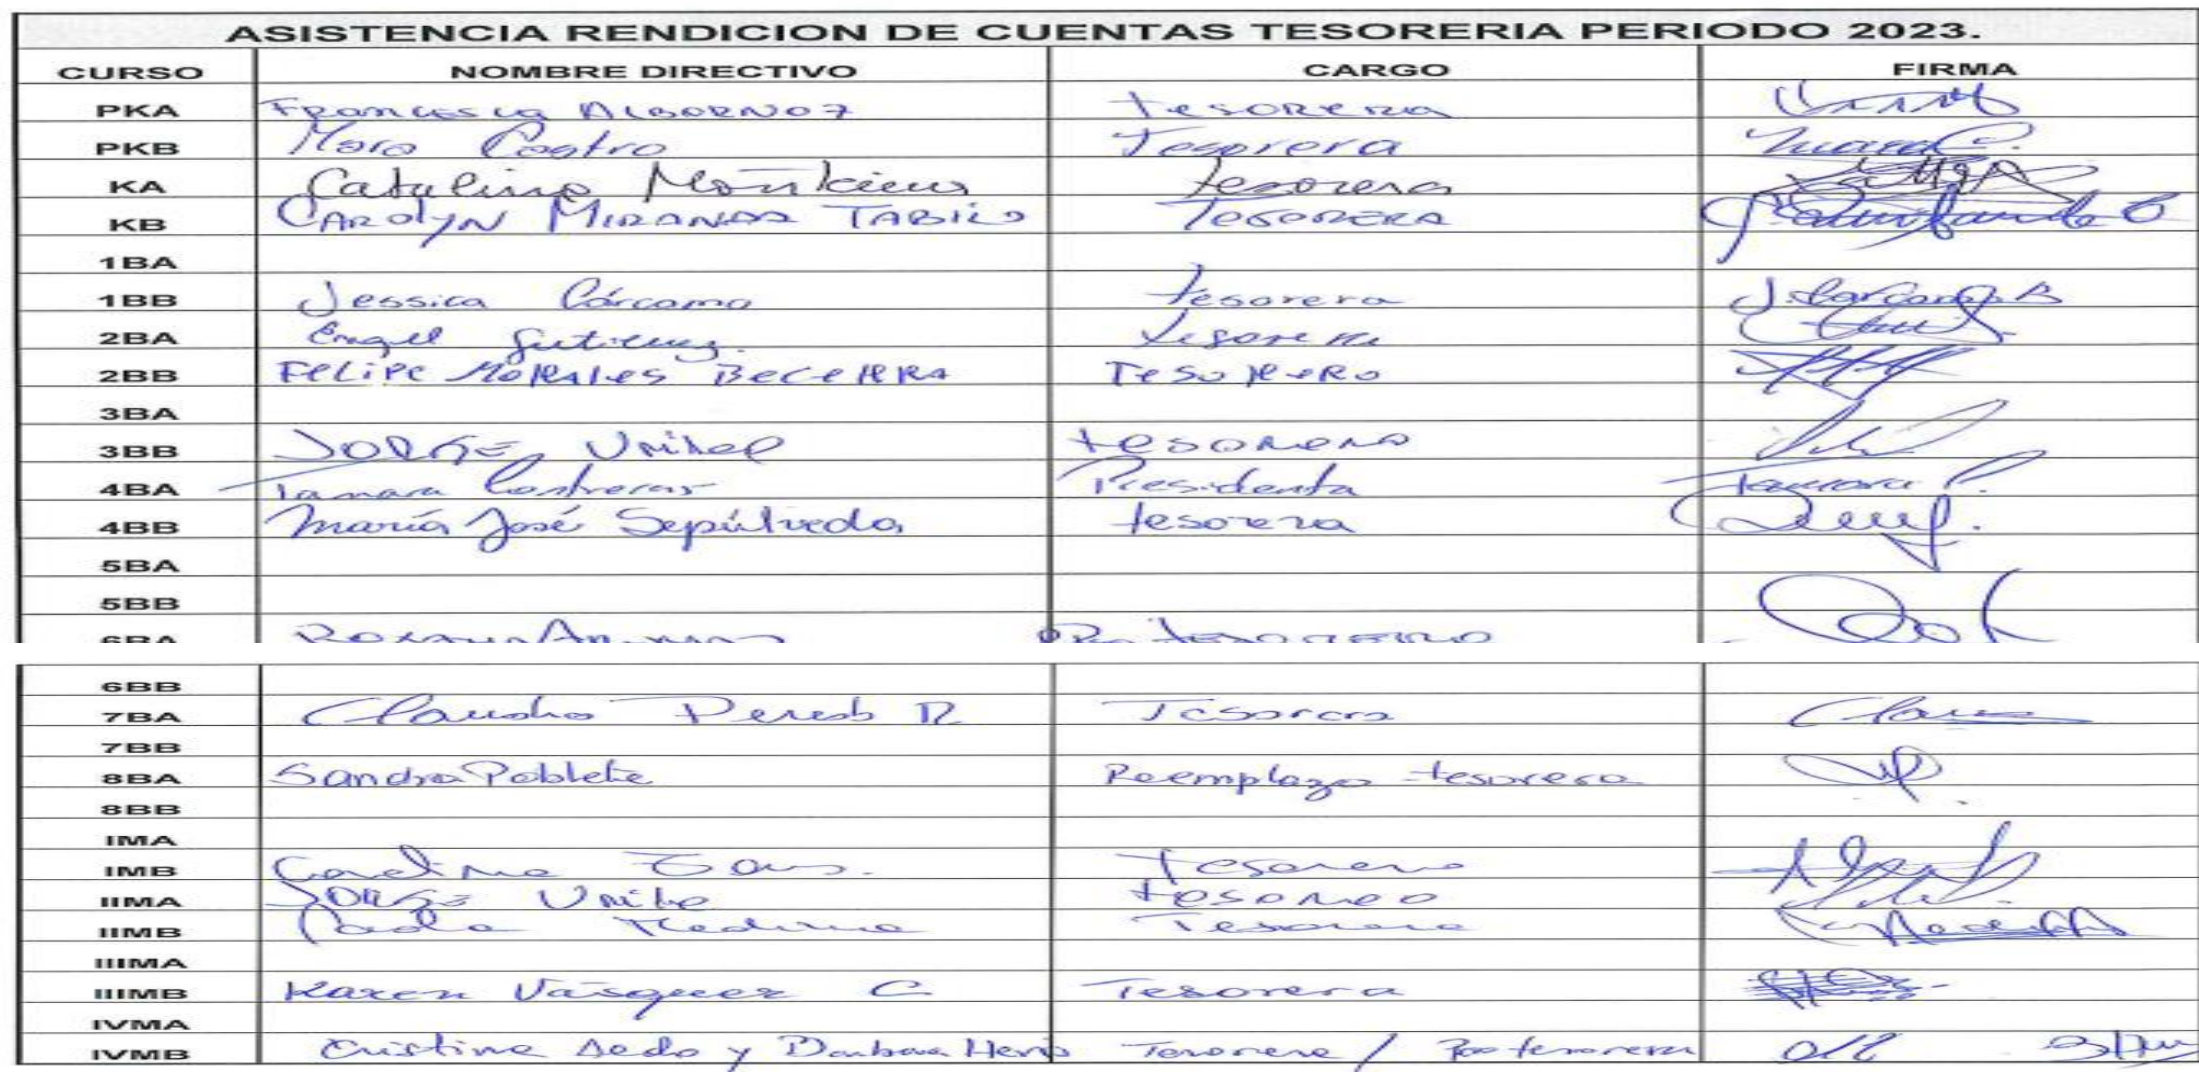 ASISTENCIA RENDICION DE CUENTAS TESORERIA PERIODO 2023.
CURSO NOMBRE DIRECTIVO CARGO FIRMA
PKA Francisca ALBORNOZ Tesorera
PKB Mara Castro Tesorera
KA Catalina Tesorera
KB CAROLYN MIRANDA TABILO TESORERA
1BA
1BB Jessica Cárcamo Tesorera J. Cárcamo B
2BA Engell Gutierrez. Tesorera
2BB Felipe Morales Becerra Tesorero
3BA
3BB JORGE Uribe tesorero
4BA Tamara Contreras Presidenta Tamara C.
4BB María José Sepúlveda tesorera
5BA
5BB
6BA
6BB
7BA Claudia R Tesorera
7BB
8BA Sandra Poblete Reemplazo tesorera
8BB
IMA
IMB Carolina Tesorera
IIMA JORGE Uribe tesorero
IIMB Paola Medina Tesorera
IIIMA
IIIMB Karen Vásquez C Tesorera
IVMA
IVMB Cristina Aedo y Tesorera / Protesorera